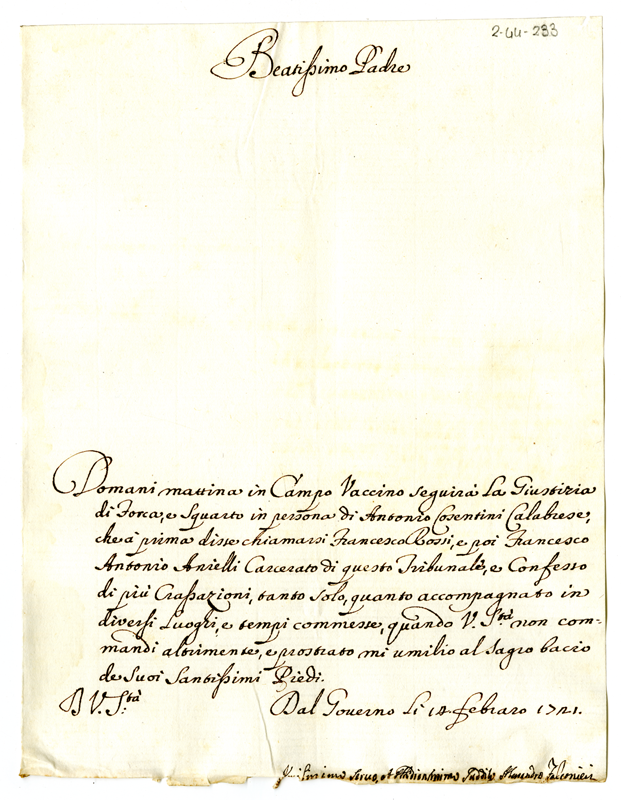 2-44-233
Beatissimo Padre
Domani mattina in Campo Vaccino seguirà La Giustizia
di Forca, e Squarto in persona di Antonio Cosentini Calabrese,
che à prima disse chiamarsi Francesco Bossi, e poi Francesco
Antonio Anielli Carcerato di questo Tribunale, e Confesso
di più Crassazioni, tanto solo, quanto accompagnato in
diversi Luoghi, e tempi commesse, quando V. S.tà non com-
mandi altrimente, e prostrato mi umilio al Sagro bacio
de Suoi Santissimi Piedi.
D V. S.tà Dal Governo Li 14 febraro 1741.
Servo, et Suddito Alessandro Falconieri